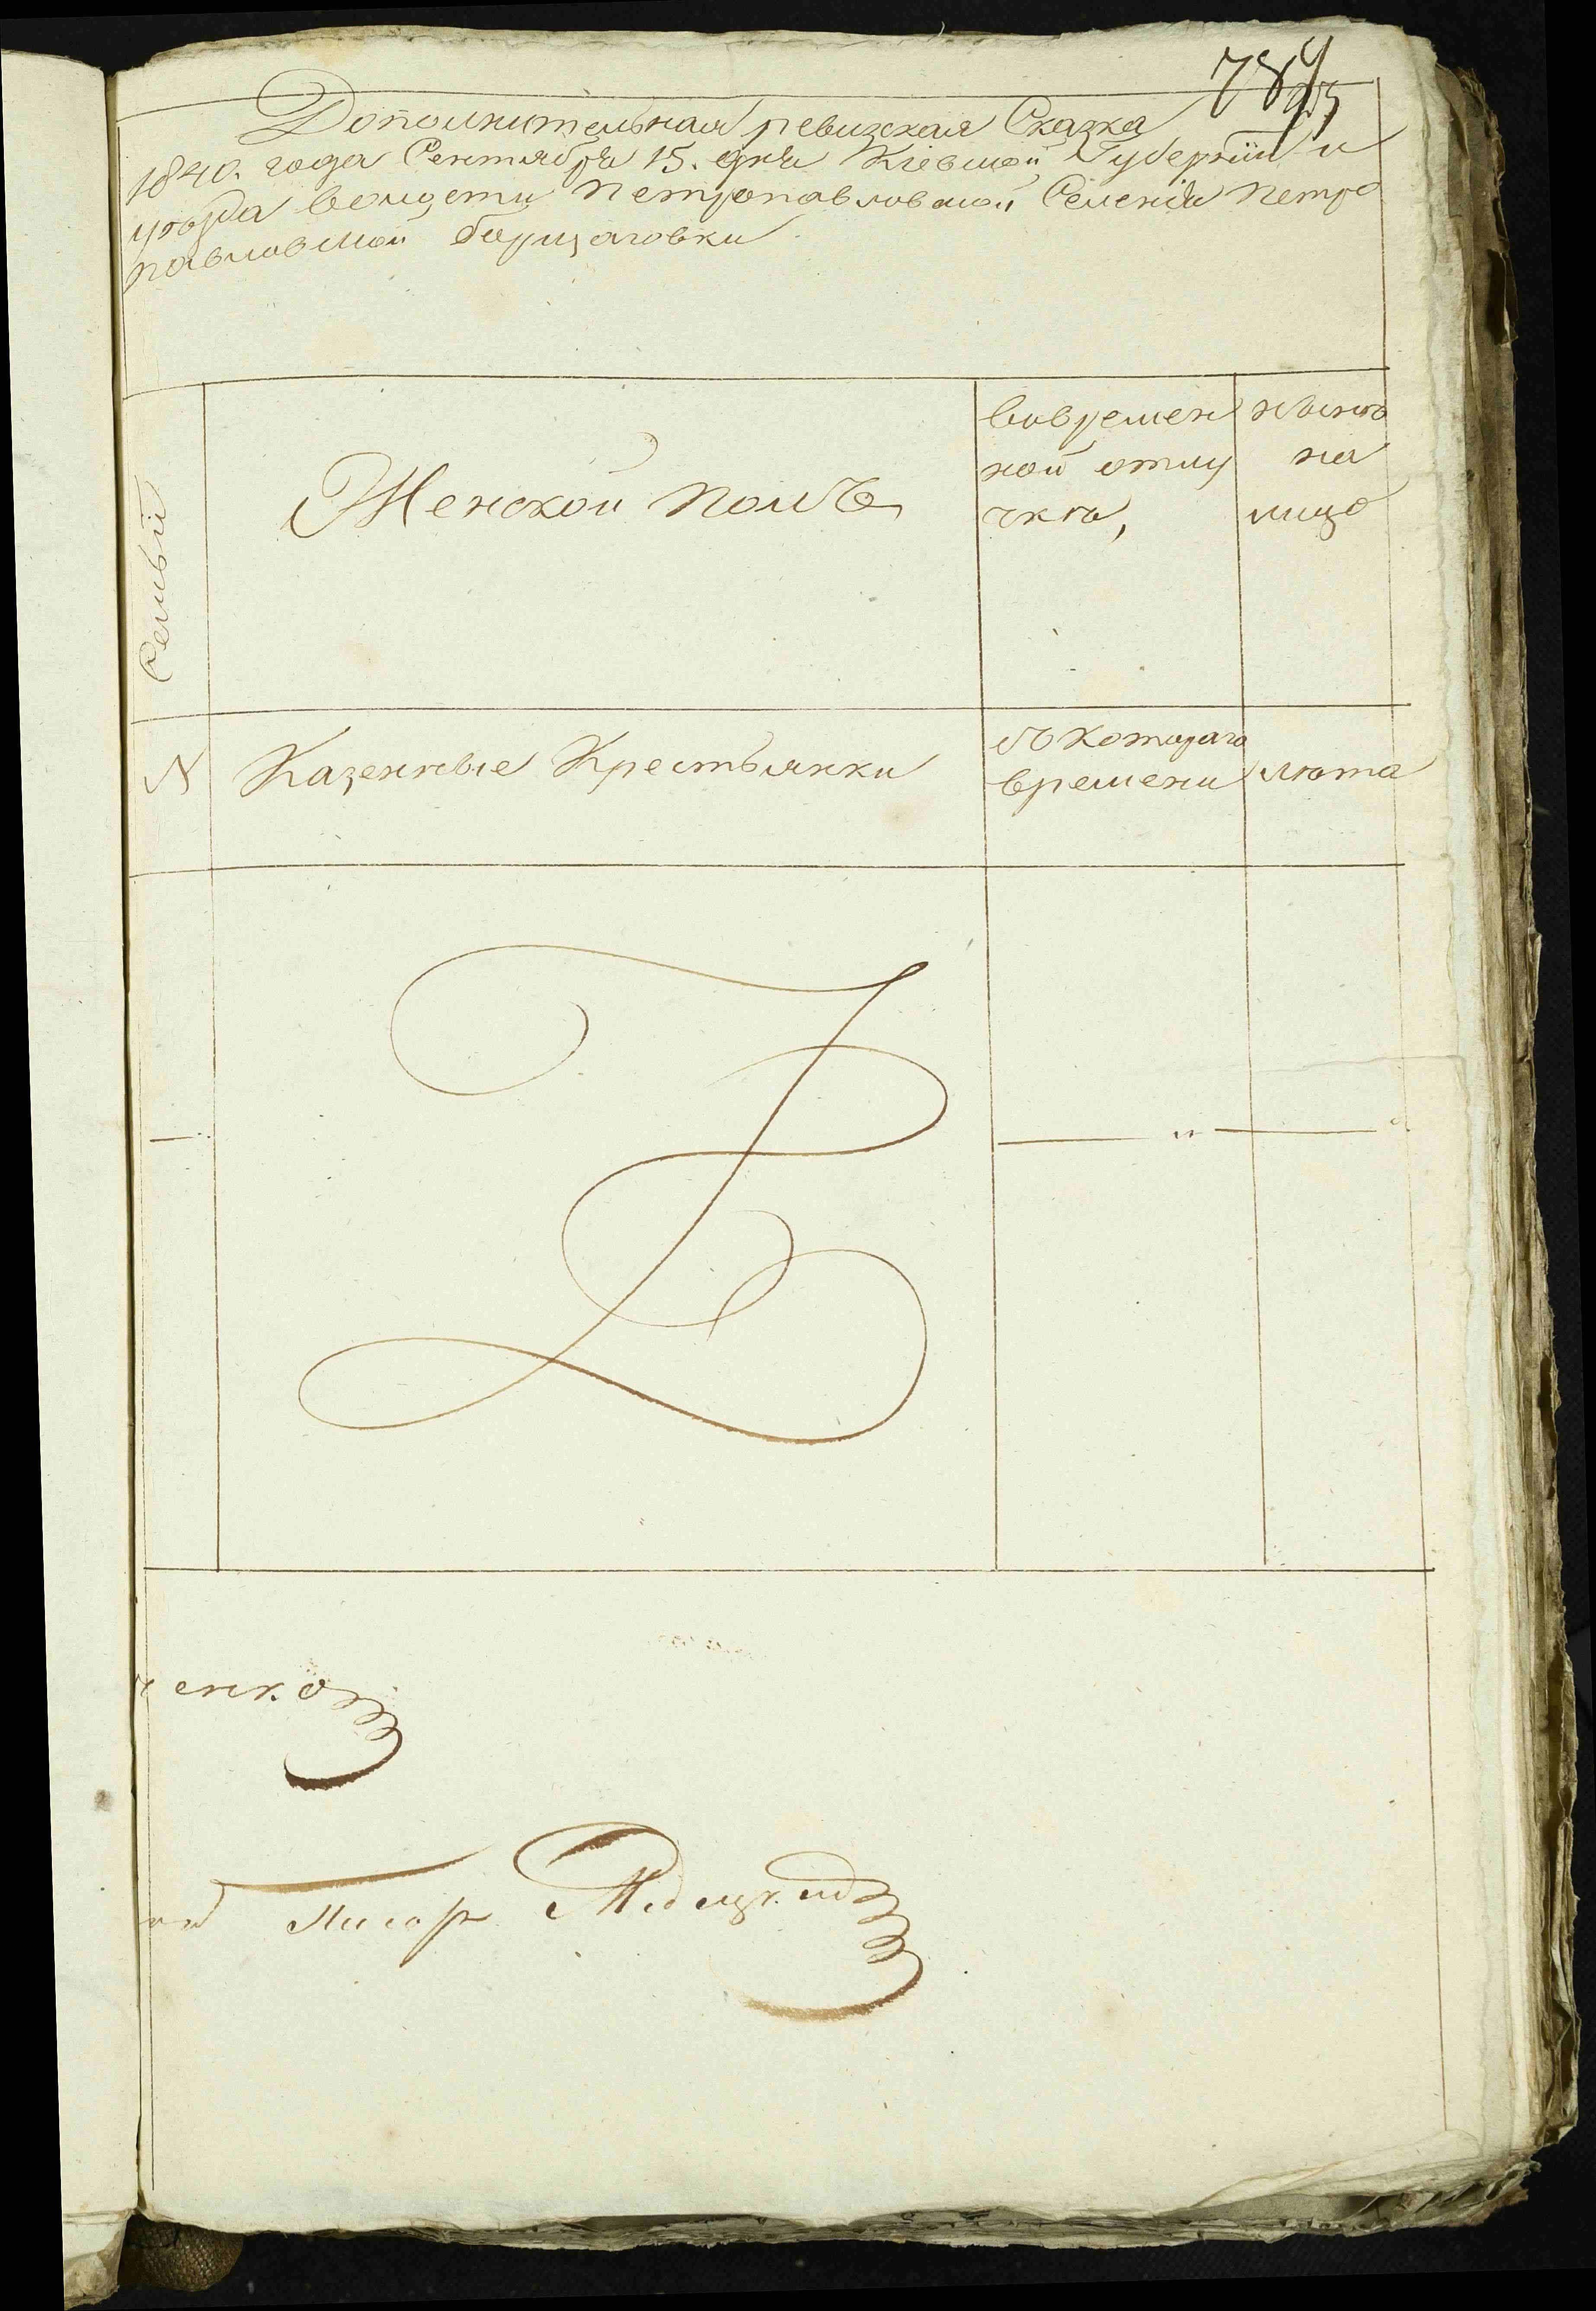 784
Дополнительная ревизская Сказка
1840. года Сентября 15. дня Кіевской Губерніи и
уѣзда волости Петропавловской Селенія Петро
павловской борщаговки
Семьи
Женской Полъ
вовремен
ной отлу
чкѣ,
нынѣ
на
лицо
N
Казенные Крестьянки
съ котораго
времени
лѣта
ченко
Писарь